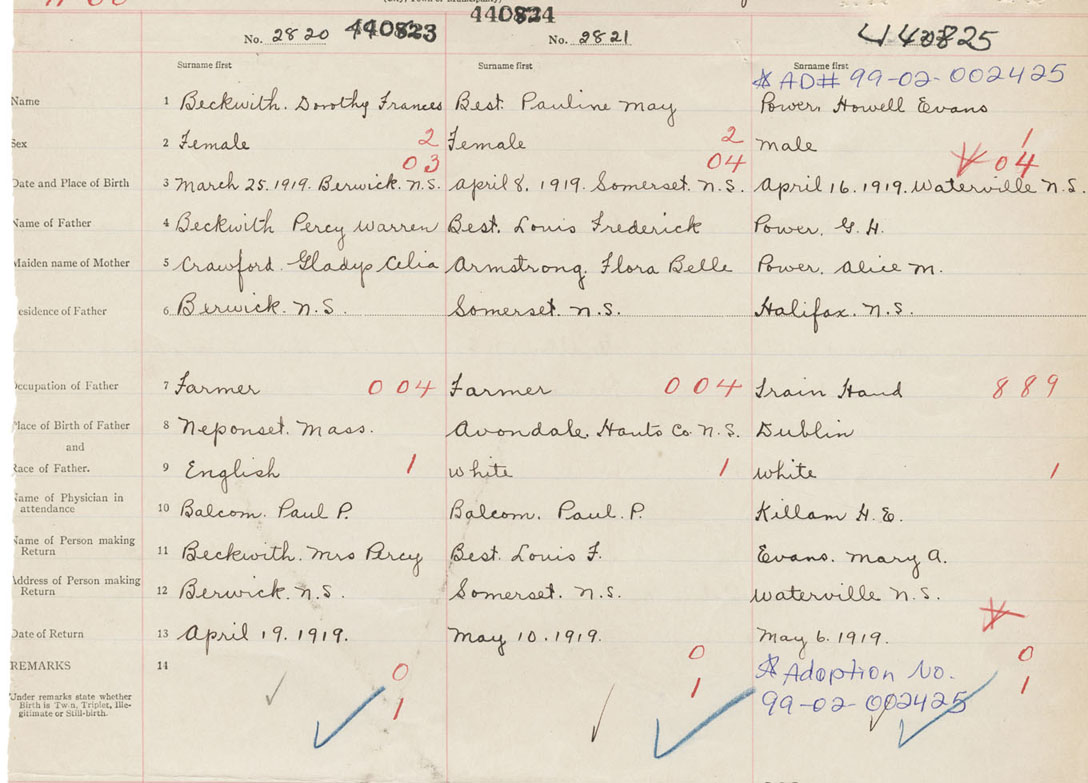 440824
No. 2820 440823
No. 2821
440825
Surname first
Surname first
Surname first
* AD# 99-02-002425
Name 1 Beckwith. Dorothy Frances Best. Pauline May Power. Howell Evans
Sex 2 Female 2 Female 2 Male 1
03 04 04
Date and Place of Birth 3 March 25. 1919. Berwick. N.S. April 8. 1919. Somerset. N.S. April 16. 1919. Waterville N.S.
Name of Father 4 Beckwith Percy Warren Best. Louis Frederick Power. G. H.
Maiden name of Mother 5 Crawford. Gladys Celia Armstrong. Flora Belle Power. Alice M.
esidence of Father 6 Berwick. N.S. Somerset. N.S. Halifax. N.S.
Occupation of Father 7 Farmer 004 Farmer 004 Train Hand 889
Place of Birth of Father 8 Neponset. Mass. Avondale. Hants Co. N.S. Dublin
and
Race of Father. 9 English 1 White 1 White 1
Name of Physician in
attendance 10 Balcom. Paul P. Balcom. Paul. P. Killam H. E.
Name of Person making
Return 11 Beckwith. Mrs Percy Best. Louis F. Evans. Mary A.
Address of Person making
Return 12 Berwick. N.S. Somerset. N.S. Waterville N.S.
Date of Return 13 April 19. 1919. May 10. 1919. May 6. 1919.
REMARKS 14 0 0 0
* Adoption No.
99-02-002425
1 1 1
Under remarks state whether
Birth is Twin, Triplet, Ille-
gitimate or Still-birth.